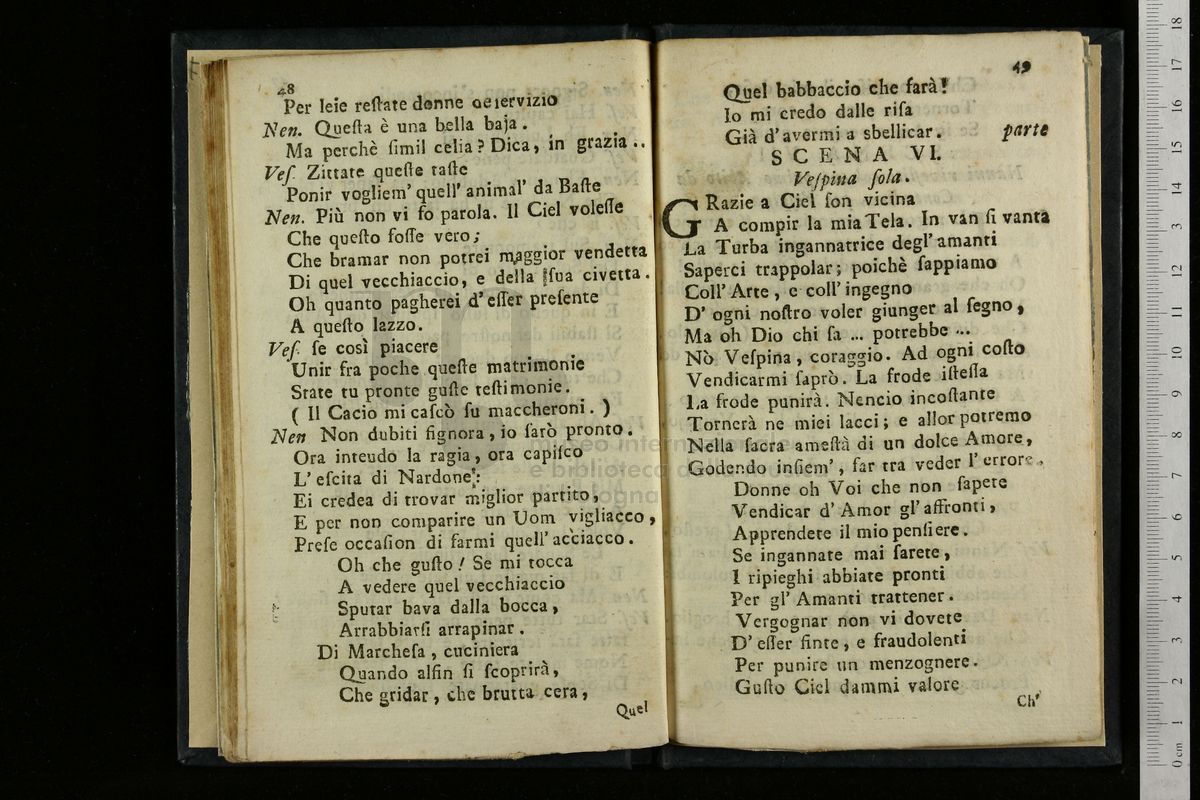 48
Per leie reſtate donne de ſervizio
Nen. Queſta è una bella baja.
Ma perchè ſimil celia? Dica, in grazia..
Veſ. Zittate queſte taſte
Ponir vogliem' quell' animal' da Baſte
Nen. Più non vi fo parola. Il Ciel voleſſe
Che queſto foſſe vero;
Che bramar non potrei maggior vendetta
Di quel vecchiaccio, e della ſua civetta.
Oh quanto pagherei d' eſſer preſente
A queſto lazzo.
Veſ. ſe così piacere
Unir fra poche queſte matrimonie
State tu pronte guſte teſtimonie.
( Il Cacio mi caſcò ſu maccheroni. )
Nen Non dubiti ſignora, io ſarò pronto.
Ora intendo la ragia, ora capiſco
L' eſcita di Nardone:
Ei credea di trovar miglior partito,
E per non comparire un Uom vigliacco,
Preſe occaſion di farmi quell' acciacco.
Oh che guſto! Se mi tocca
A vedere quel vecchiaccio
Sputar bava dalla bocca,
Arrabbiarſi arrapinar.
Di Marcheſa, cuciniera
Quando alfin ſi ſcoprirà,
Che gridar, che brutta cera,
Quel
49
Quel babbaccio che farà!
Io mi credo dalle riſa
Già d' avermi a sbellicar. parte
SCENA VI.
Veſpina ſola.
GRazie a Ciel ſon vicina
A compir la mia Tela. In van ſi vanta
La Turba ingannatrice degl' amanti
Saperci trappolar; poichè ſappiamo
Coll' Arte, e coll' ingegno
D' ogni noſtro voler giunger al ſegno,
Ma oh Dio chi ſa ... potrebbe ...
Nò Veſpina, coraggio. Ad ogni coſto
Vendicarmi ſaprò. La frode iſteſſa
La frode punirà. Nencio incoſtante
Tornerà ne miei lacci; e allor potremo
Nella ſacra ameſtà di un dolce Amore,
Godendo inſiem', far tra veder l' errore.
Donne oh Voi che non ſapete
Vendicar d' Amor gl' affronti,
Apprendete il mio penſiere.
Se ingannate mai ſarete,
I ripieghi abbiate pronti
Per gl' Amanti trattener.
Vergognar non vi dovete
D' eſſer finte, e fraudolenti
Per punire un menzognere.
Guſto Ciel dammi valore
Ch'